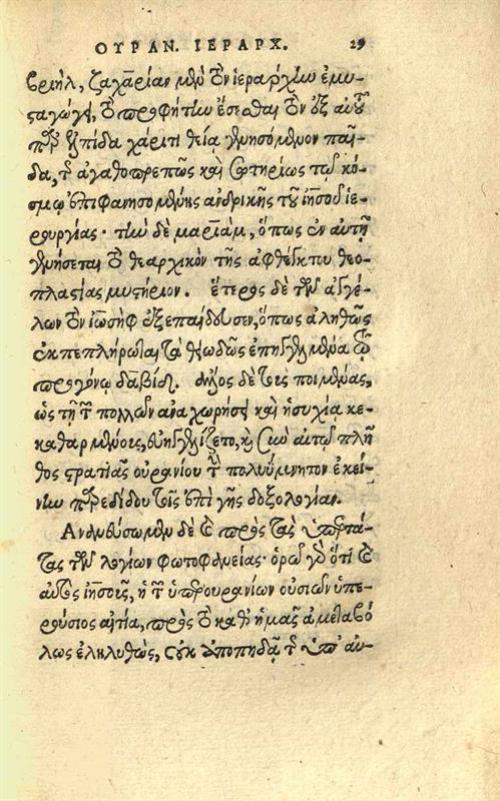 ΟΥΡΑΝ. ΙΕΡΑΡΧ. 29
βριὴλ, ζαχαρίαν μὲν τὸν ἱεράρχην ἐμυ-
σταγώγει, τὸ προφήτην ἔσεσθαι τὸν ἐξ αὐτοῦ
παρ' ἐλπίδα χάριτι θείᾳ γενησόμενον παῖ-
δα, τῆς ἀγαθοπρεπῶς καὶ σωτηρίως τῷ κό-
σμῳ ἐπιφανησομένης ἀνδρικῆς τοῦ ἰησοῦ ἱε-
ρουργίας· τὴν δὲ μαριὰμ, ὅπως ἐν αὐτῇ
γενήσεται τὸ θεαρχικὸν τῆς ἀφθέγκτου θεο-
πλαστίας μυστήριον. ἕτερος δὲ τῶν ἀγγέ-
λων τὸν ἰωσὴφ ἐξεπαίδευσεν, ὅπως ἀληθῶς
ἐκπεπλήρωται τὰ θειωδῶς ἐπηγγελμένα τῷ
προγόνῳ δαβίδ. ἄλλος δὲ τοῖς ποιμέσιν,
ὡς τῇ τῶν πολλῶν ἀναχωρήσει καὶ ἡσυχίᾳ κε-
καθαρμένοις, εὐηγγελίζετο, καὶ σὺν αὐτῷ πλῆ
θος στρατιᾶς οὐρανίου τὴν πολυύμνητον ἐκεί-
νην παρεδίδου τοῖς ἐπὶ γῆς δοξολογίαν.
Ἀναλύσωμεν δὲ καὶ πρὸς τὰς ὑπερτά-
τας τῶν λογίων φωτοφανείας· ὁρῶ γὰρ ὅτι καὶ
αὐτὸς ἰησοῦς, ἡ τῶν ὑπερουρανίων οὐσιῶν ὑπε-
ρούσιος αἰτία, πρὸς τὸ καθ' ἡμᾶς ἀμεταβό
λως ἐληλυθὼς, οὐκ ἀποπηδᾷ τῆς ὑπ' αὐ-